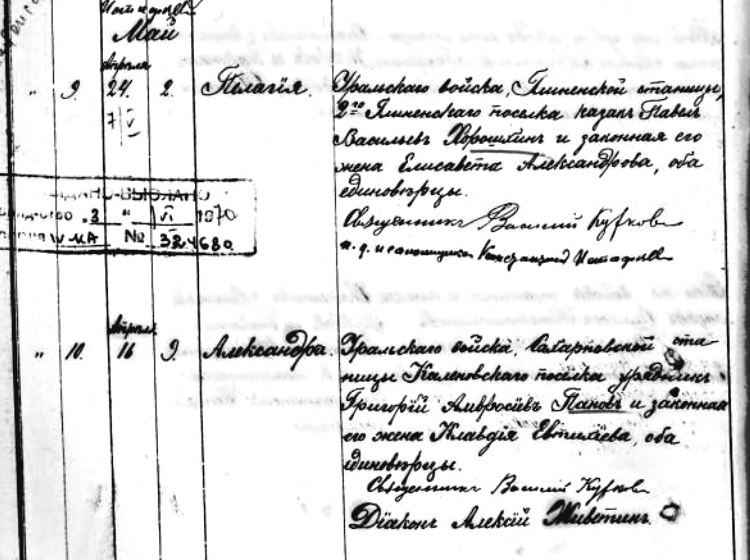 Май
Апрѣля
„ 9. 24. 2. Пелагія. Уральскаго войска, Глиненской станицы,
7/V 2го Глиненскаго поселка казакъ Павелъ
Васильевъ Хорошхинъ и законная его
жена Елисавета Александрова, оба
единовѣрцы.
ВЫДАНО
3 „ VI 1970
№ 324680
Священникъ Василій
и. д. псаломщика
Апрѣля
„ 10. 16 9. Александра. Уральскаго войска, Сахарновской ста-
ницы Каленовскаго посёлка урядникъ
Григорій Амвросіевъ Пановъ и законная
его жена Клавдія Евтихіева, оба
единовѣрцы.
Священникъ Василій
Діаконъ Алексій Живетинъ.